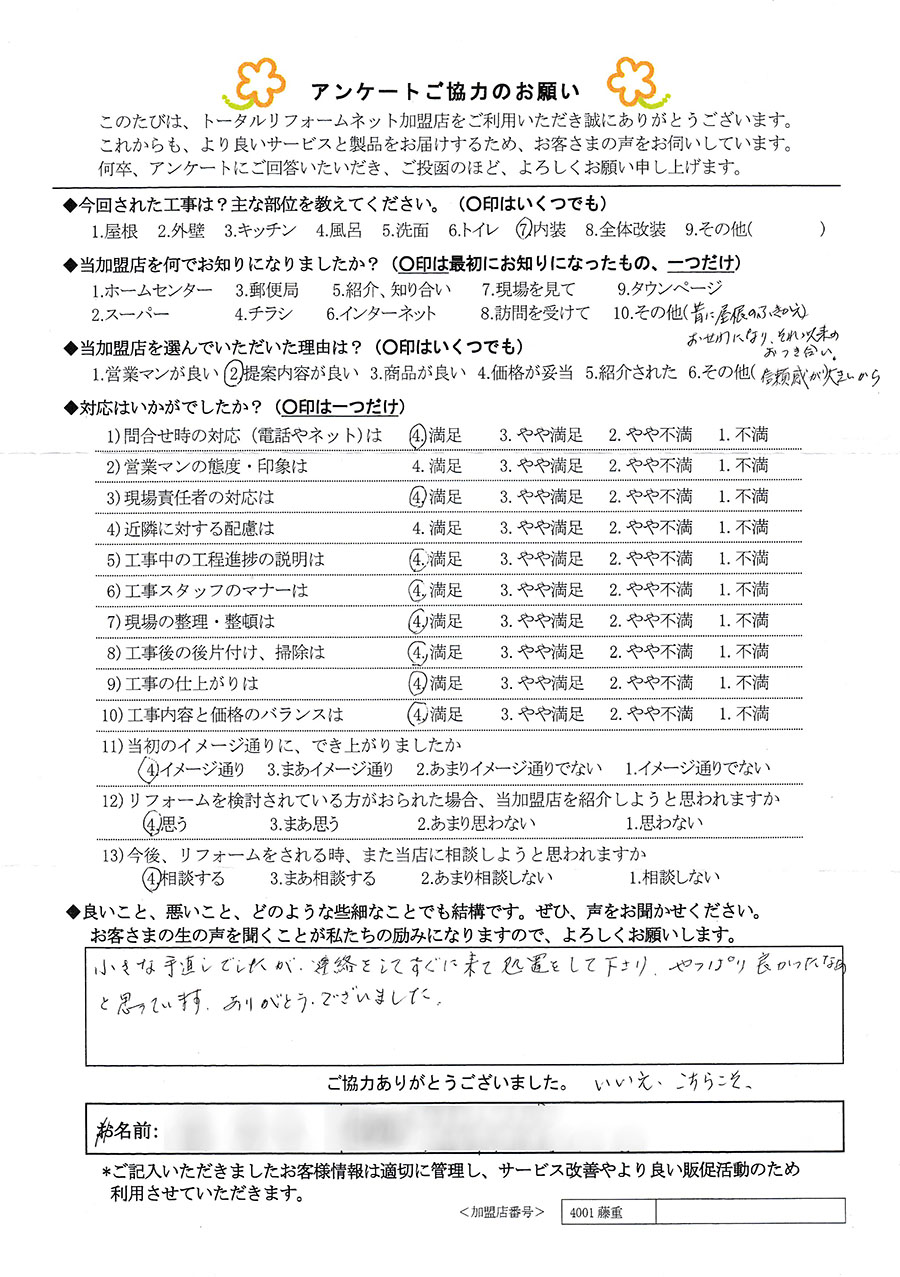 アンケートご協力のお願い
このたびは、トータルリフォームネット加盟店をご利用いただき誠にありがとうございます。
これからも、より良いサービスと製品をお届けするため、お客さまの声をお伺いしています。
何卒、アンケートにご回答いたいだき、ご投函のほど、よろしくお願い申し上げます。
◆今回された工事は？主な部位を教えてください。（〇印はいくつでも）
1.屋根 2.外壁 3.キッチン 4.風呂 5.洗面 6.トイレ ⑦内装 8.全体改装 9.その他( )
◆当加盟店を何でお知りになりましたか？（〇印は最初にお知りになったもの、一つだけ）
1.ホームセンター 3.郵便局 5.紹介、知り合い 7.現場を見て 9.タウンページ
2.スーパー 4.チラシ 6.インターネット 8.訪問を受けて 10.その他(昔に屋根のふきかえ)
おせわになり、それ以来の
おつき合い。
◆当加盟店を選んでいただいた理由は？（〇印はいくつでも）
1.営業マンが良い ②提案内容が良い 3.商品が良い 4.価格が妥当 5.紹介された 6.その他(信頼感が大きいから
◆対応はいかがでしたか？（〇印は一つだけ）
1)問合せ時の対応（電話やネット)は ④.満足 3.やや満足 2.やや不満 1.不満
2)営業マンの態度・印象は 4.満足 3.やや満足 2.やや不満 1.不満
3)現場責任者の対応は ④満足 3.やや満足 2.やや不満 1.不満
4)近隣に対する配慮は 4.満足 3.やや満足 2.やや不満 1.不満
5)工事中の工程進捗の説明は ④.満足 3.やや満足 2.やや不満 1.不満
6)工事スタッフのマナーは ④.満足 3.やや満足 2.やや不満 1.不満
7)現場の整理・整頓は ④満足 3.やや満足 2.やや不満 1.不満
8)工事後の後片付け、掃除は ④.満足 3.やや満足 2.やや不満 1.不満
9)工事の仕上がりは ④満足 3.やや満足 2.やや不満 1.不満
10)工事内容と価格のバランスは ④.満足 3.やや満足 2.やや不満 1.不満
11)当初のイメージ通りに、でき上がりましたか
④イメージ通り 3.まあイメージ通り 2.あまりイメージ通りでない 1.イメージ通りでない
12)リフォームを検討されている方がおられた場合、当加盟店を紹介しようと思われますか
④思う 3.まあ思う 2.あまり思わない 1.思わない
13)今後、リフォームをされる時、また当店に相談しようと思われますか
④相談する 3.まあ相談する 2.あまり相談しない 1.相談しない
◆良いこと、悪いこと、どのような些細なことでも結構です。ぜひ、声をお聞かせください。
お客さまの生の声を聞くことが私たちの励みになりますので、よろしくお願いします。
小さな手直しでしたが、連絡をしてすぐに来て処置をして下さり、やっぱり良かったなあ
と思っています。ありがとうございました。
ご協力ありがとうございました。 いいえ、こちらこそ、
お名前:
*ご記入いただきましたお客様情報は適切に管理し、サービス改善やより良い販促活動のため
利用させていただきます。
＜加盟店番号＞ 4001藤重